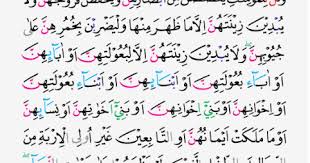 يُبْدِيْنَ زِيْنَتَهُنَّ اِلَّا مَا ظَهَرَ مِنْهَا وَلْيَضْرِبْنَ بِخُمُرِهِنَّ عَلٰى
جُيُوْبِهِنَّ ۖ وَلَا يُبْدِيْنَ زِيْنَتَهُنَّ اِلَّا لِبُعُوْلَتِهِنَّ اَوْ اٰبَآءِهِنَّ
اَوْ اٰبَآءِ بُعُوْلَتِهِنَّ اَوْ اَبْنَآءِهِنَّ اَوْ اَبْنَآءِ بُعُوْلَتِهِنَّ
اَوْ اِخْوَانِهِنَّ اَوْ بَنِيْٓ اِخْوَانِهِنَّ اَوْ بَنِيْٓ اَخَوٰتِهِنَّ اَوْ نِسَآءِهِنَّ
اَوْ مَا مَلَكَتْ اَيْمَانُهُنَّ اَوِ التَّابِعِيْنَ غَيْرِ اُولِي الْاِرْبَةِ مِنَ